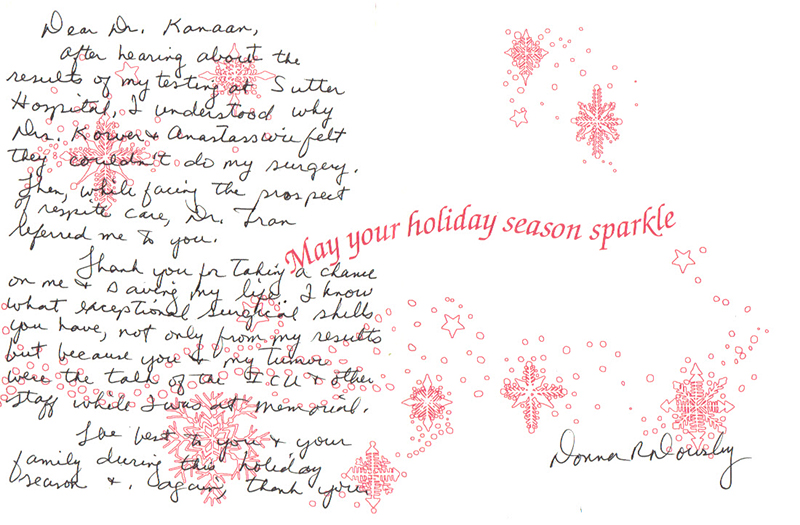 Dear Dr. Kanaan,
after hearing about the
results of my testing at Sutter
Hospital, I understood why
Drs. & felt
they couldn't do my surgery.
Then, while facing the prospect
of respite care, Dr. Tran
referred me to you.
Thank you for taking a chance
on me & saving my life. I know
what exceptional surgical skills
you have, not only from my results
but because you & my tumor
were the talk of the ICU & other
staff while I was at memorial.
The best to you & your
family during this holiday
season & again, thank you.
May your holiday season sparkle
Donna